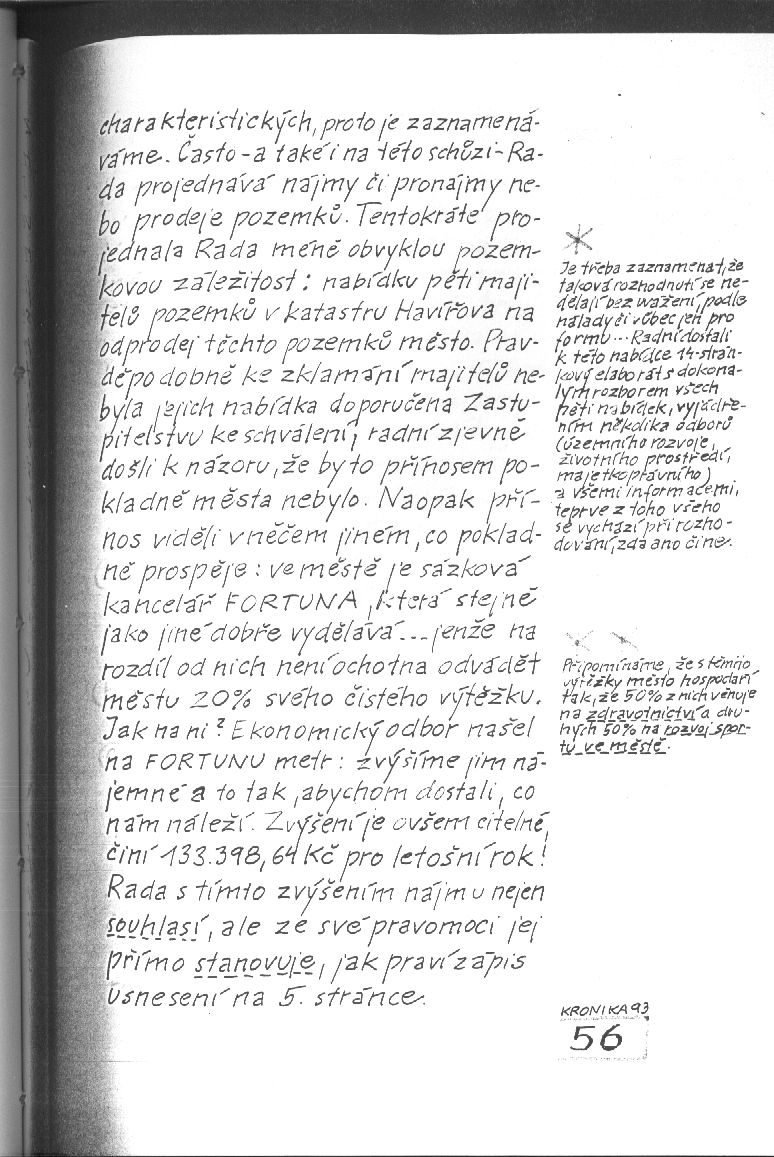 charakteristických, proto je zaznamená-
váme. Často - a také i na této schůzi - Ra-
da projednává nájmy či pronájmy ne-
bo prodeje pozemků. Tentokráte pro-
jednala Rada méně obvyklou pozem-
kovou záležitost: nabídku pěti maji-
telů pozemků v katastru Havířova na
odprodej těchto pozemků město. Prav-
děpodobně ke zklamání majitelů ne-
byla jejich nabídka doporučena Zastu-
pitelstvu ke schválení, radní zjevně
došli k názoru, že by to přínosem po-
kladně města nebylo. Naopak pří-
nos viděli v něčem jiném, co poklad-
ně prospěje: ve městě je sázková
kancelář FORTUNA, která stejně
jako jiné dobře vydělává... jenže na
rozdíl od nich není ochotna odvádět
městu 20% svého čistého výtěžku.
Jak na ni? Ekonomický odbor našel
na FORTUNU metr: zvýšíme jim ná-
jemné a to tak, abychom dostali, co
nám náleží. Zvýšení je ovšem citelné,
činí 133.398,64 Kč pro letošní rok!
Rada s tímto zvýšením nájmu nejen
souhlasí, ale ze své pravomoci jej
přímo stanovuje, jak praví zápis
usnesení na 5. stránce.
*
Je třeba zaznamenat, že
taková rozhodnutí se ne-
dělají bez vážení, podle
nálady či vůbec jen pro
formu... Radní dostali
k této nabídce 14-strán-
kový elaborát s dokona-
lým rozborem všech
pěti nabídek, vyjádře-
ním několika odborů
(územního rozvoje,
životního prostředí,
majetkoprávního)
a všemi informacemi,
teprve z toho všeho
se vychází při rozho-
dování, zda ano či ne.
* *
Připomínáme, že s těmito
výtěžky město hospodaří
tak, že 50% z nich věnuje
na zdravotnictví a dru-
hých 50% na rozvoj spor-
tu ve městě.
KRONIKA 93
56